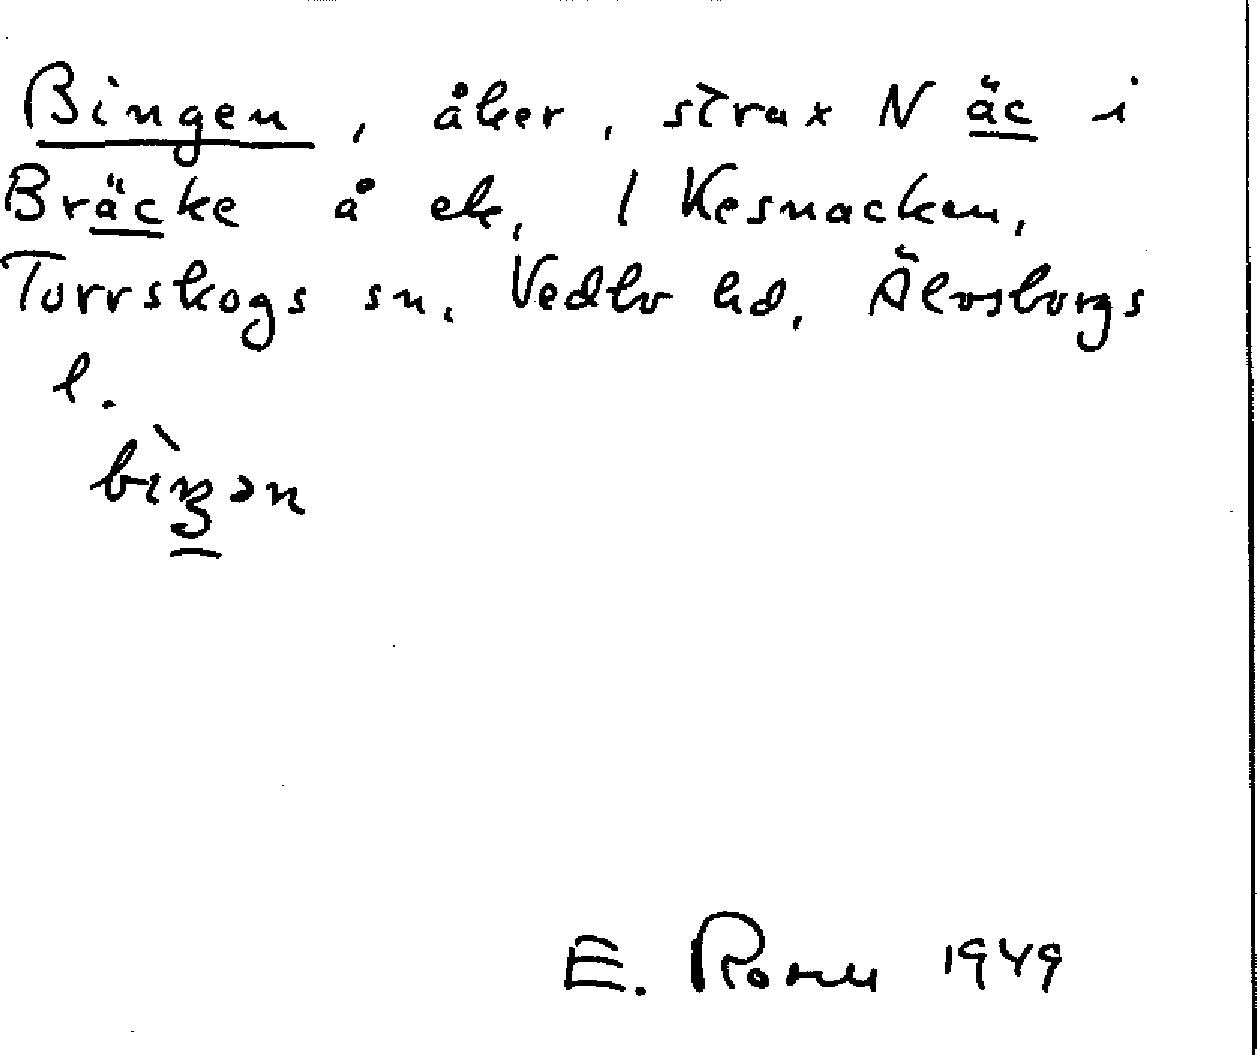 Bingen, åker, strax N äc i
Bräcke å ek, 1 Kesnacken,
Torrskogs sn. Vedbo hd, Älvsborgs
l.
bìŋən
E. 1949